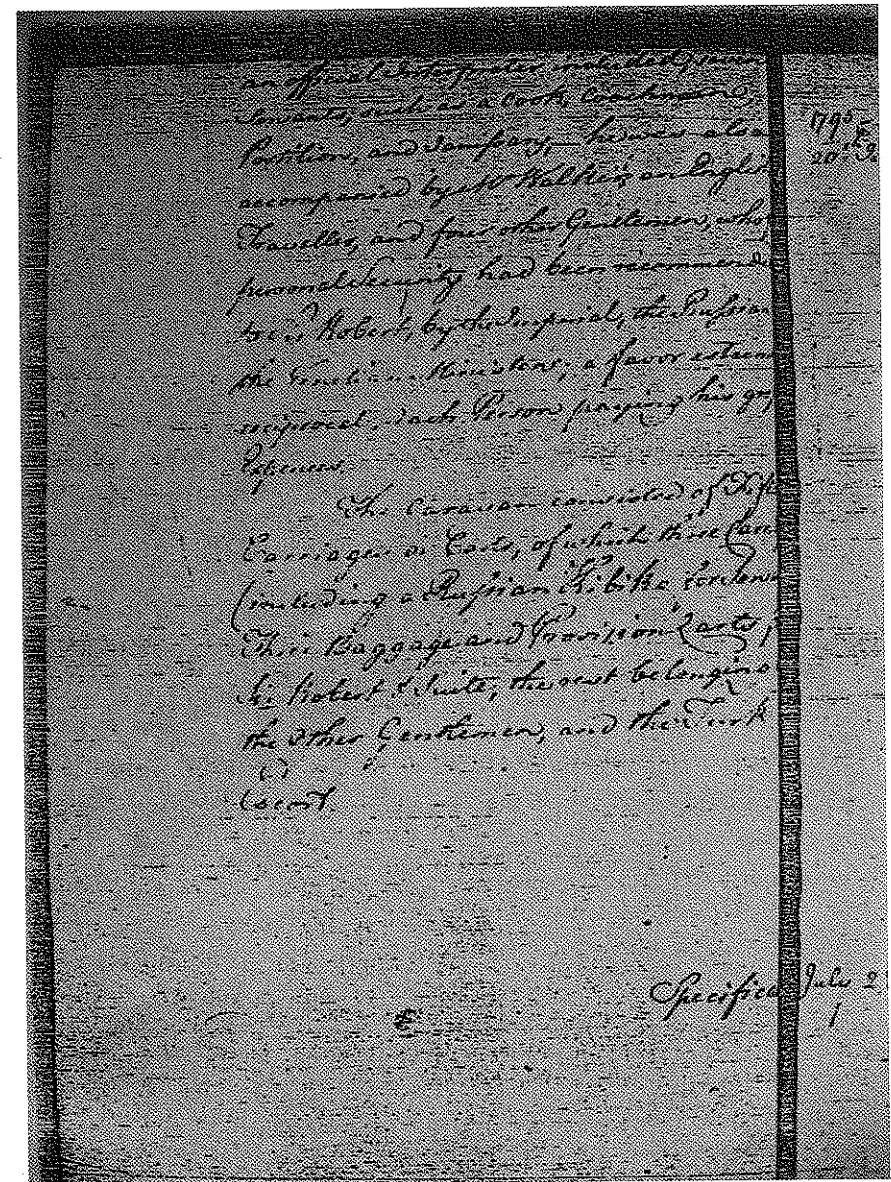 an official Interpreter included, seven
Servants, such as a Cook, Coachman,
Postilion, and Janissary, he was also
accompanied by Mr Walker, an Englis
Traveller, and four other Gentlemen, whose
personal Security had been recommend
to Sir Robert, by the Imperial, the Russian
the Venetian Ministers, a favor
reciprocal, each Person paying his
Expences.
The Caravan consisted of
Carriages or Carts, of which three
(including a Russian Kibitka
Three Baggage and Provision Carts,
Sir Robert's Suite, the rest belonging
the other Gentlemen, and the Turk
Escort.
Specifica
179
20
July 2